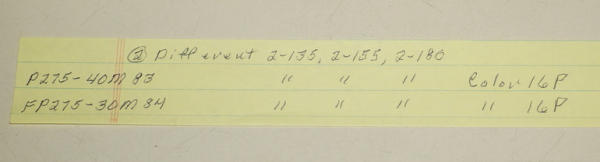 ② Different 2-135, 2-155, 2-180
P275-40M 83 " " " Color 16P
FP275-30M 84 " " " " 16P